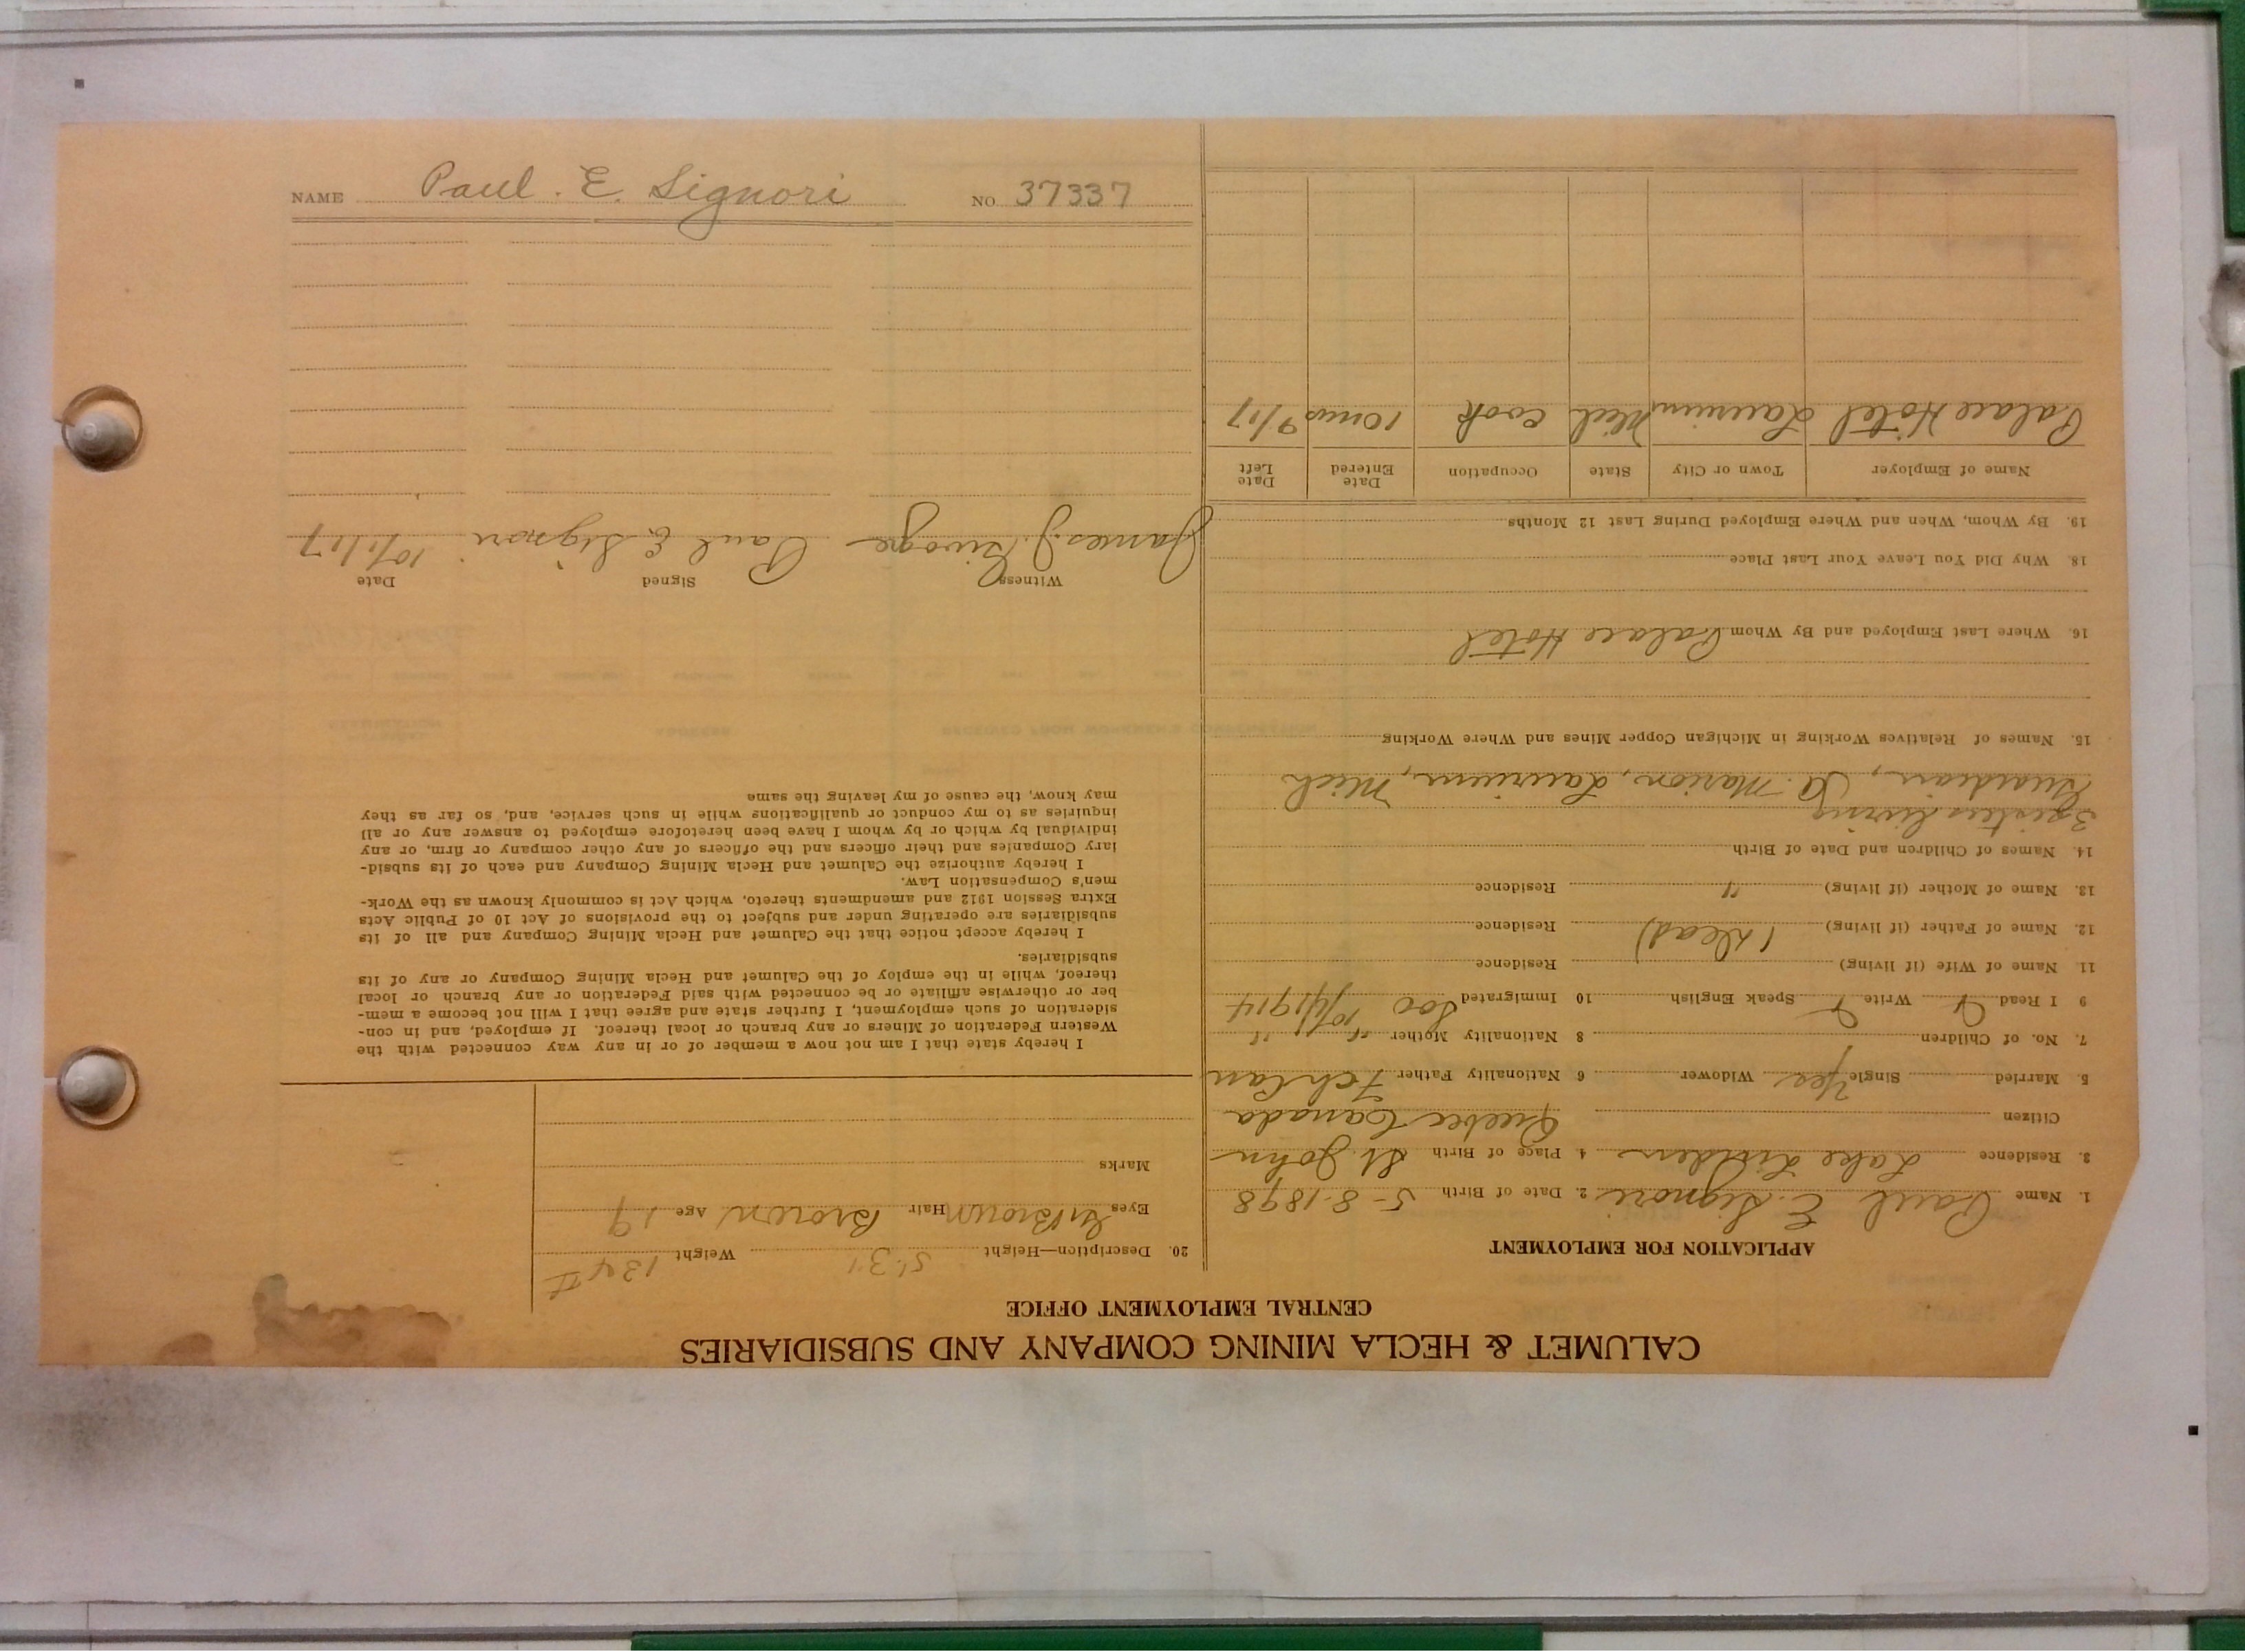 CALUMET & HECLA MINING COMPANY AND SUBSIDIARIES
CENTRAL EMPLOYMENT OFFICE
APPLICATION FOR EMPLOYMENT
1. Name Paul E. Signori 2. Date of Birth 5-8-1898
3. Residence Lake Linden 4 Place of Birth St. John
Citizen Quebec Canada
5. Married Single Yes Widower 6 Nationality Father Fch Can
7. No. of Children 8 Nationality Mother " "
9 I Read Write Speak English 10 Immigrated Soo 10/4/1914
11. Name of Wife (if living) Residence
12. Name of Father (if living) (Dead) Residence
13. Name of Mother (if living) " Residence
14. Names of Children and Date of Birth
3 sisters living
Guardian, Marion, Laurium, Mich
15. Names of Relatives Working in Michigan Copper Mines and Where Working
16. Where Last Employed and By Whom Palace Hotel
18. Why Did You Leave Your Last Place
19. By Whom, When and Where Employed During Last 12 Months
Name of Employer Town or City State Occupation Date Entered Date Left
Palace Hotel Laurium Mich Cook 10 mos 9/17
20. Description—Height 5'.3" Weight 134 #
Eyes Brown Hair Brown Age 19
Marks
I hereby state that I am not now a member of or in any way connected with the
Western Federation of Miners or any branch or local thereof. If employed, and in con-
sideration of such employment, I further state and agree that I will not become a mem-
ber or otherwise affiliate or be connected with said Federation or any branch or local
thereof, while in the employ of the Calumet and Hecla Mining Company or any of its
subsidiaries.
I hereby accept notice that the Calumet and Hecla Mining Company and all of its
subsidiaries are operating under and subject to the provisions of Act 10 of Public Acts
Extra Session 1912 and amendments thereto, which Act is commonly known as the Work-
men's Compensation Law.
I hereby authorize the Calumet and Hecla Mining Company and each of its subsid-
iary Companies and their officers and the officers of any other company or firm, or any
individual by which or by whom I have been heretofore employed to answer any or all
inquiries as to my conduct or qualifications while in such service, and, so far as they
may know, the cause of my leaving the same
Witness Signed Date
James J. Paul E Signori 10/1/17
NAME Paul. E. Signori NO. 37337